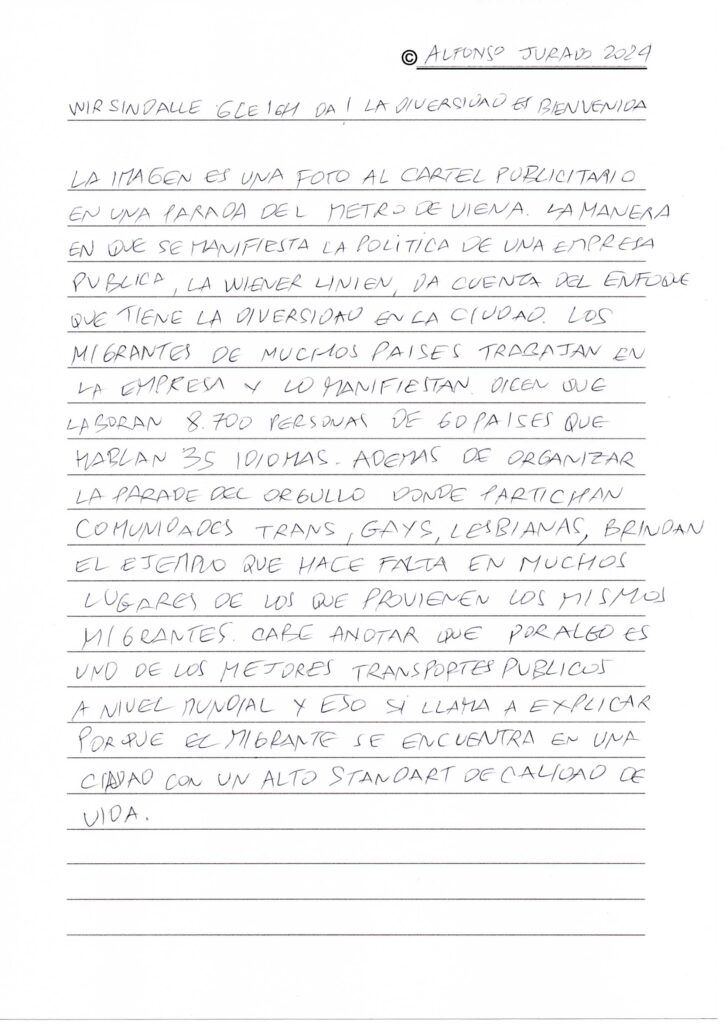 © ALFONSO JURADO 2024
WIR SIND ALLE GLEICH DA! LA DIVERSIDAD ES BIENVENIDA
LA IMAGEN ES UNA FOTO AL CARTEL PUBLICITARIO
EN UNA PARADA DEL METRO DE VIENA. LA MANERA
EN QUE SE MANIFIESTA LA POLITICA DE UNA EMPRESA
PUBLICA, LA WIENER LINIEN, DA CUENTA DEL ENFOQUE
QUE TIENE LA DIVERSIDAD EN LA CIUDAD. LOS
MIGRANTES DE MUCHOS PAISES TRABAJAN EN
LA EMPRESA Y LO MANIFIESTAN. DICEN QUE
LABORAN 8.700 PERSONAS DE 60 PAISES QUE
HABLAN 35 IDIOMAS. ADEMAS DE ORGANIZAR
LA PARADE DEL ORGULLO DONDE PARTICIPAN
COMUNIDADES TRANS, GAYS, LESBIANAS, BRINDAN
EL EJEMPLO QUE HACE FALTA EN MUCHOS
LUGARES DE LOS QUE PROVIENEN LOS MISMOS
MIGRANTES. CABE ANOTAR QUE POR ALGO ES
UNO DE LOS MEJORES TRANSPORTES PUBLICOS
A NIVEL MUNDIAL Y ESO SI LLAMA A EXPLICAR
PORQUE EL MIGRANTE SE ENCUENTRA EN UNA
CIUDAD CON UN ALTO STANDART DE CALIDAD DE
VIDA.